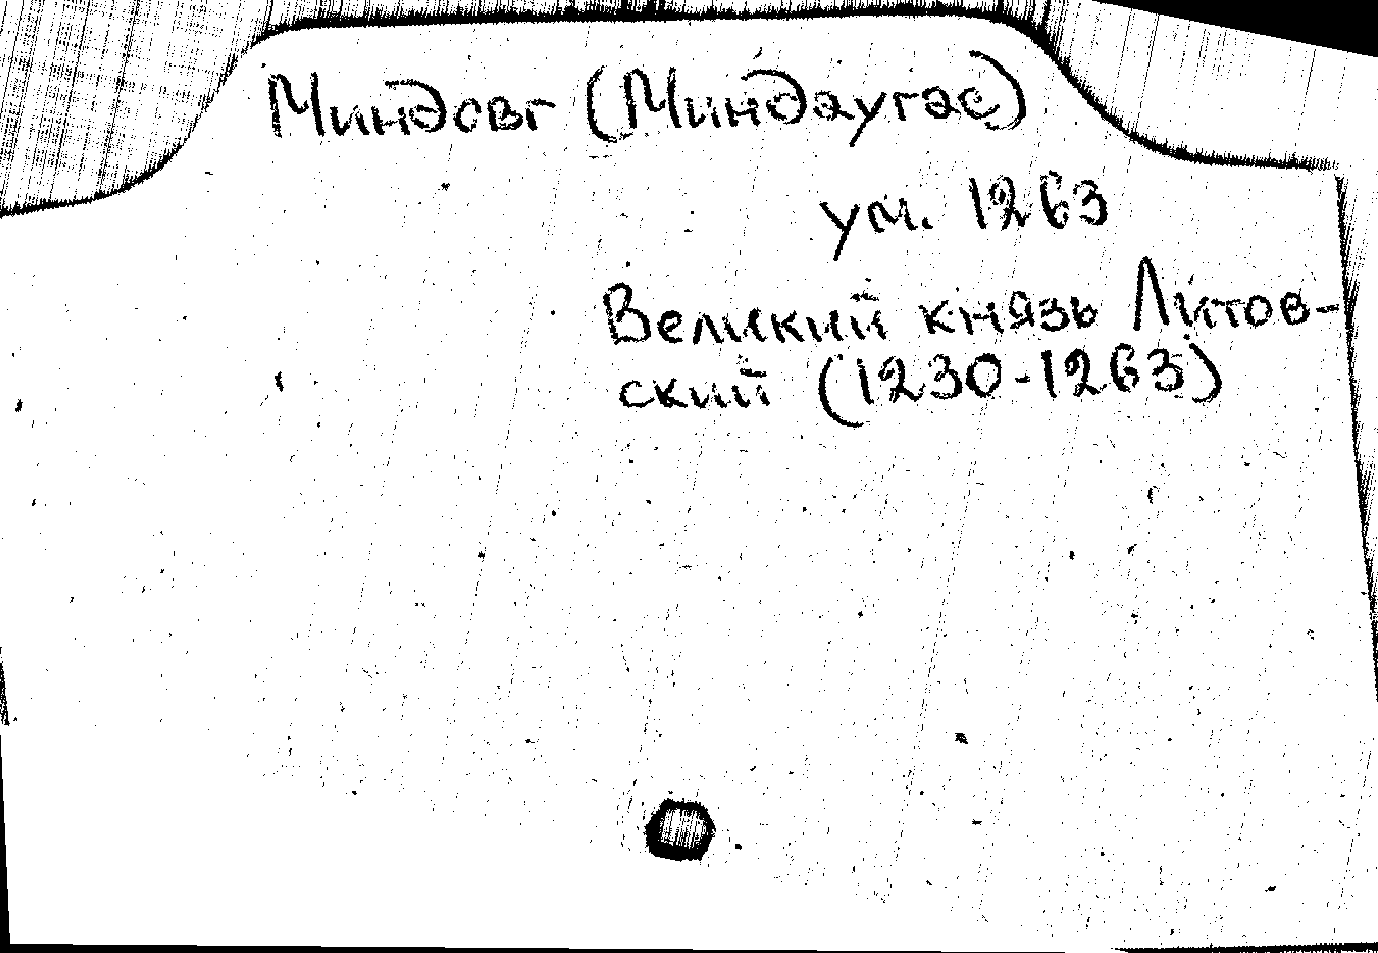 Миндовг (Миндаугас)
ум. 1263
Великий князь Литов-
ский (1230-1263)